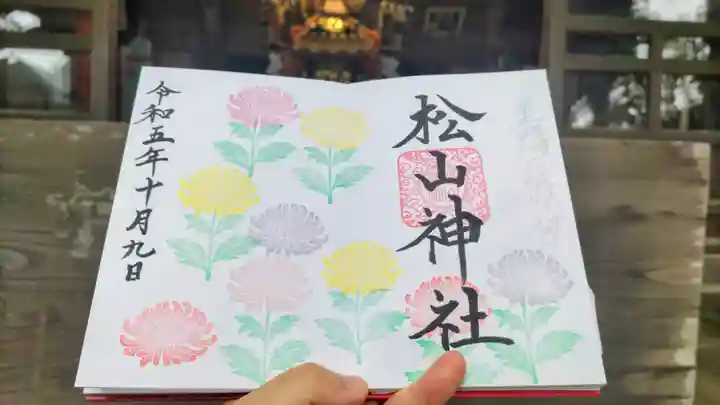 松山神社
令和五年十月九日